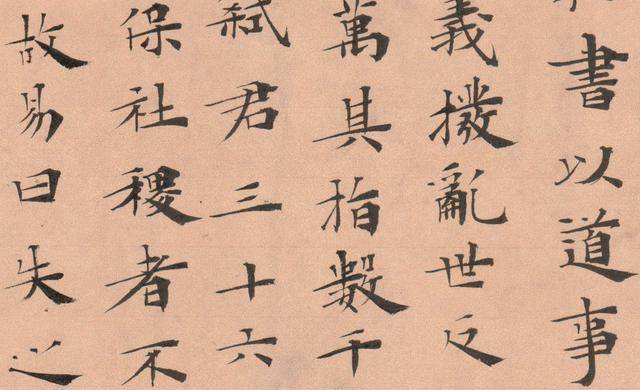 書以道事
義撥亂世反
萬其指數千
弒君三十六
保社稷者不
故易曰失之